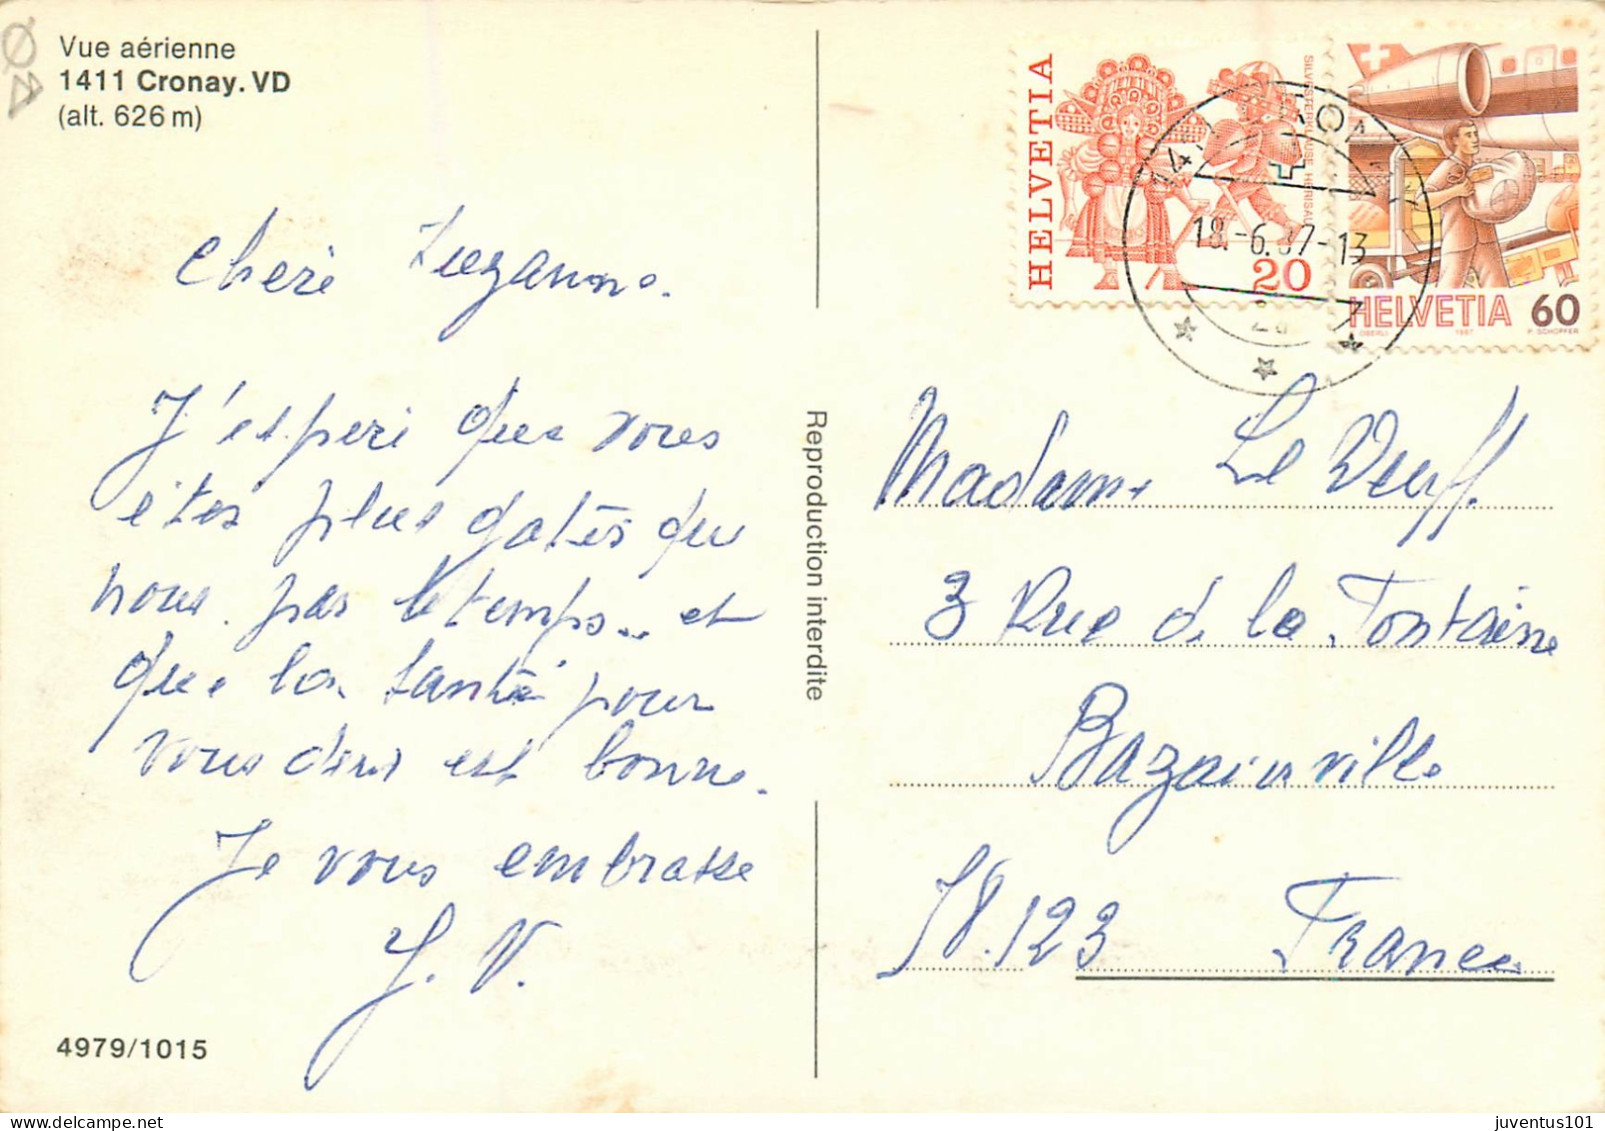 Vue aérienne
1411 Cronay. VD
(alt. 626 m)
HELVETIA
SILVESTERKLÄUSE HERISAU
20
HELVETIA 60
OBERLI 1987 P. SCHOPFER
18.-6.87-13
Cheré Suzanne.
J'esperé que vous
êtes plus gatés que
nous. pas le temps... et
que la santé pour
vous deux est bonne.
Je vous embrasse
J. V.
4979/1015
Reproduction interdite
Madame Le Deuff
3 Rue de la Fontaine
Bazainville
78.123 France
juventus101